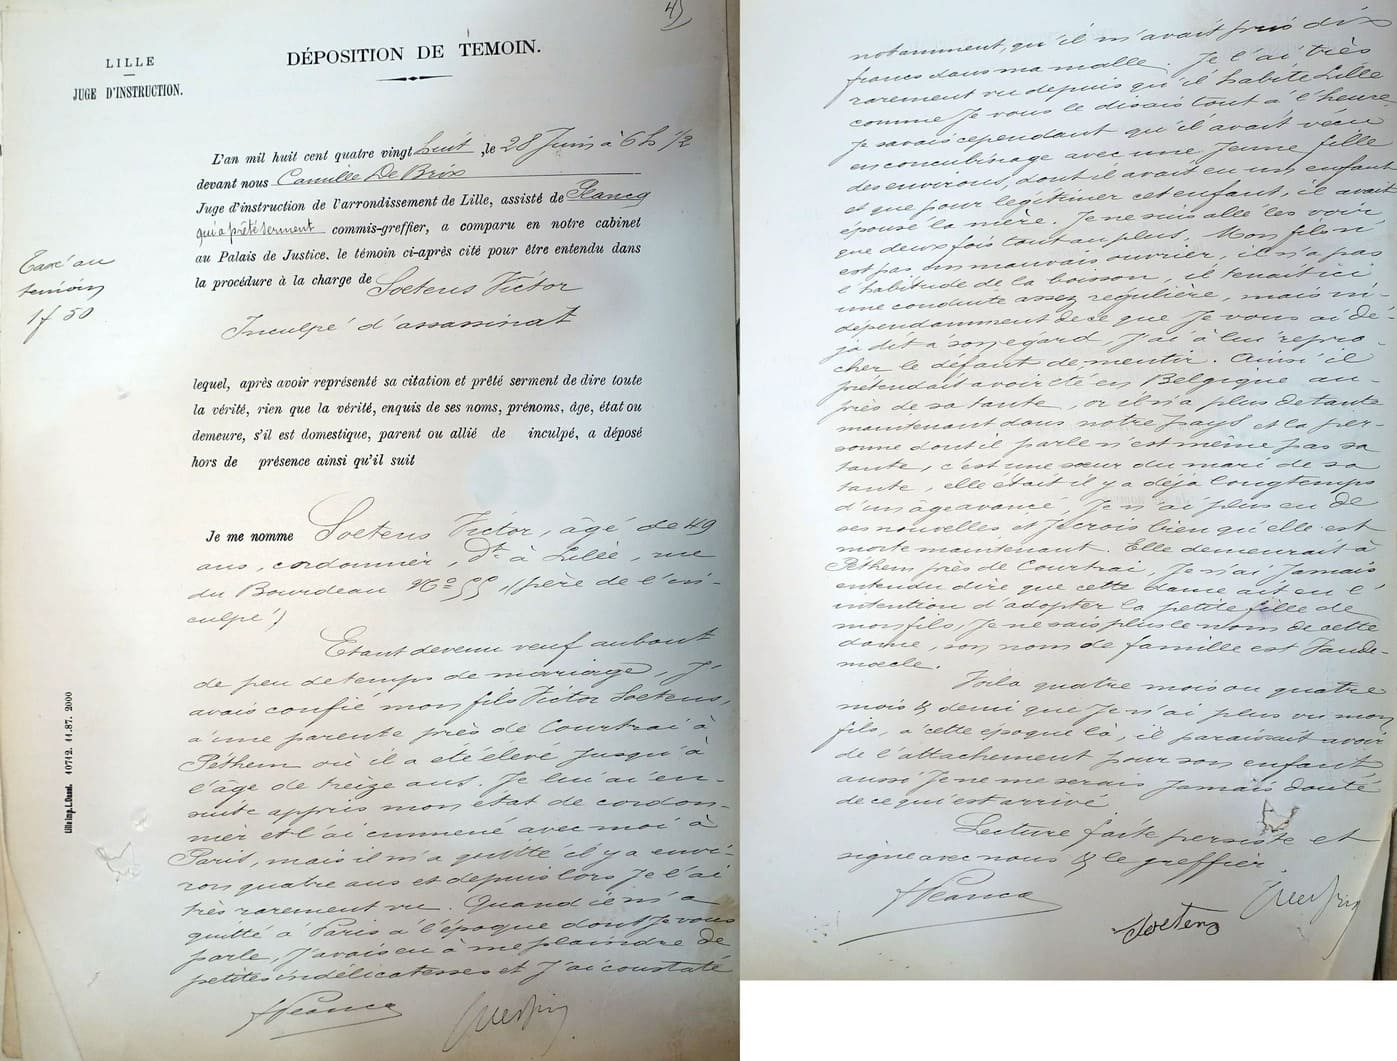 45
LILLE
JUGE D'INSTRUCTION.
DÉPOSITION DE TEMOIN.
L'an mil huit cent quatre vingt huit, le 28 Juin à 6 h 1/2
devant nous Camille De Brix
Juge d'instruction de l'arrondissement de Lille, assisté de Plancq
qui a prêté serment commis-greffier, a comparu en notre cabinet
au Palais de Justice. le témoin ci-après cité pour être entendu dans
la procédure à la charge de Soetens Victor
Inculpé d'assassinat
Taxé au
temoin
1f 50
lequel, après avoir représenté sa citation et prêté serment de dire toute
la vérité, rien que la vérité, enquis de ses noms, prénoms, âge, état ou
demeure, s'il est domestique, parent ou allié de inculpé, a déposé
hors de présence ainsi qu'il suit
Je me nomme Soetens Victor, âgé de 49
ans, cordonnier, Dt à Lille, rue
du Bourdeau No 55, (père de l'in-
culpé)
Etant devenu veuf au bout
de peu de temps de mariage, J'
avais confié mon fils Victor Soetens,
à une parente près de Courtrai à
Péthem où il a été élevé jusqu'à
l'âge de treize ans. Je lui ai en-
suite appris mon état de cordon-
nier et l'ai emmené avec moi à
Paris, mais il m'a quitté il y a envi-
ron quatre ans et depuis lors Je l'ai
très rarement vu. Quand il m'a
quitté à Paris à l'époque dont Je vous
parle, J'avais eu à me plaindre de
petites indélicatesses et J'ai constaté
Lille Imp. L. Danel. 40712. 11.87. 2000
notamment, qu'il m'avait pris dix
francs dans ma malle. Je l'ai très
rarement vu depuis qu'il habite Lille
comme Je vous le disais tout à l'heure.
Je savais cependant qu'il avait vécu
en concubinage avec une Jeune fille
des environs, dont il avait eu un enfant
et que pour légitimer cet enfant, il avait
épousé la mère. Je ne suis allé les voir
que deux fois tout au plus. Mon fils n'
est pas un mauvais ouvrier, il n'a pas
l'habitude de la boisson, il tenait ici
une conduite assez regulière, mais in-
dépendamment de ce que Je vous ai dé-
jà dit à son égard, J'ai à lui repro-
cher le défaut de mentir. Ainsi il
prétendait avoir été en Belgique au-
près de sa tante, or il n'a plus de tante
maintenant dans notre pays et la per-
sonne dont il parle n'est même pas sa
tante, c'est une sœur du mari de sa
tante, elle était il y a déjà longtemps
d'un âge avancé, Je n'ai plus eu de
ses nouvelles et Je crois bien qu'elle est
morte maintenant. Elle demeurait à
Péthem près de Courtrai, Je n'ai Jamais
entendu dire que cette dame ait eu l'
intention d'adopter la petite fille de
mon fils, Je ne sais plus le nom de cette
dame, son nom de famille est Vande-
moecle.
Voilà quatre mois ou quatre
mois & demi que Je n'ai plus vu mon
fils, à cette époque là, il paraissait avoir
de l'attachement pour son enfant
aussi Je ne me serais Jamais douté
de ce qui est arrivé.
Lecture faite persiste et
signe avec nous & le greffier.
Soetens